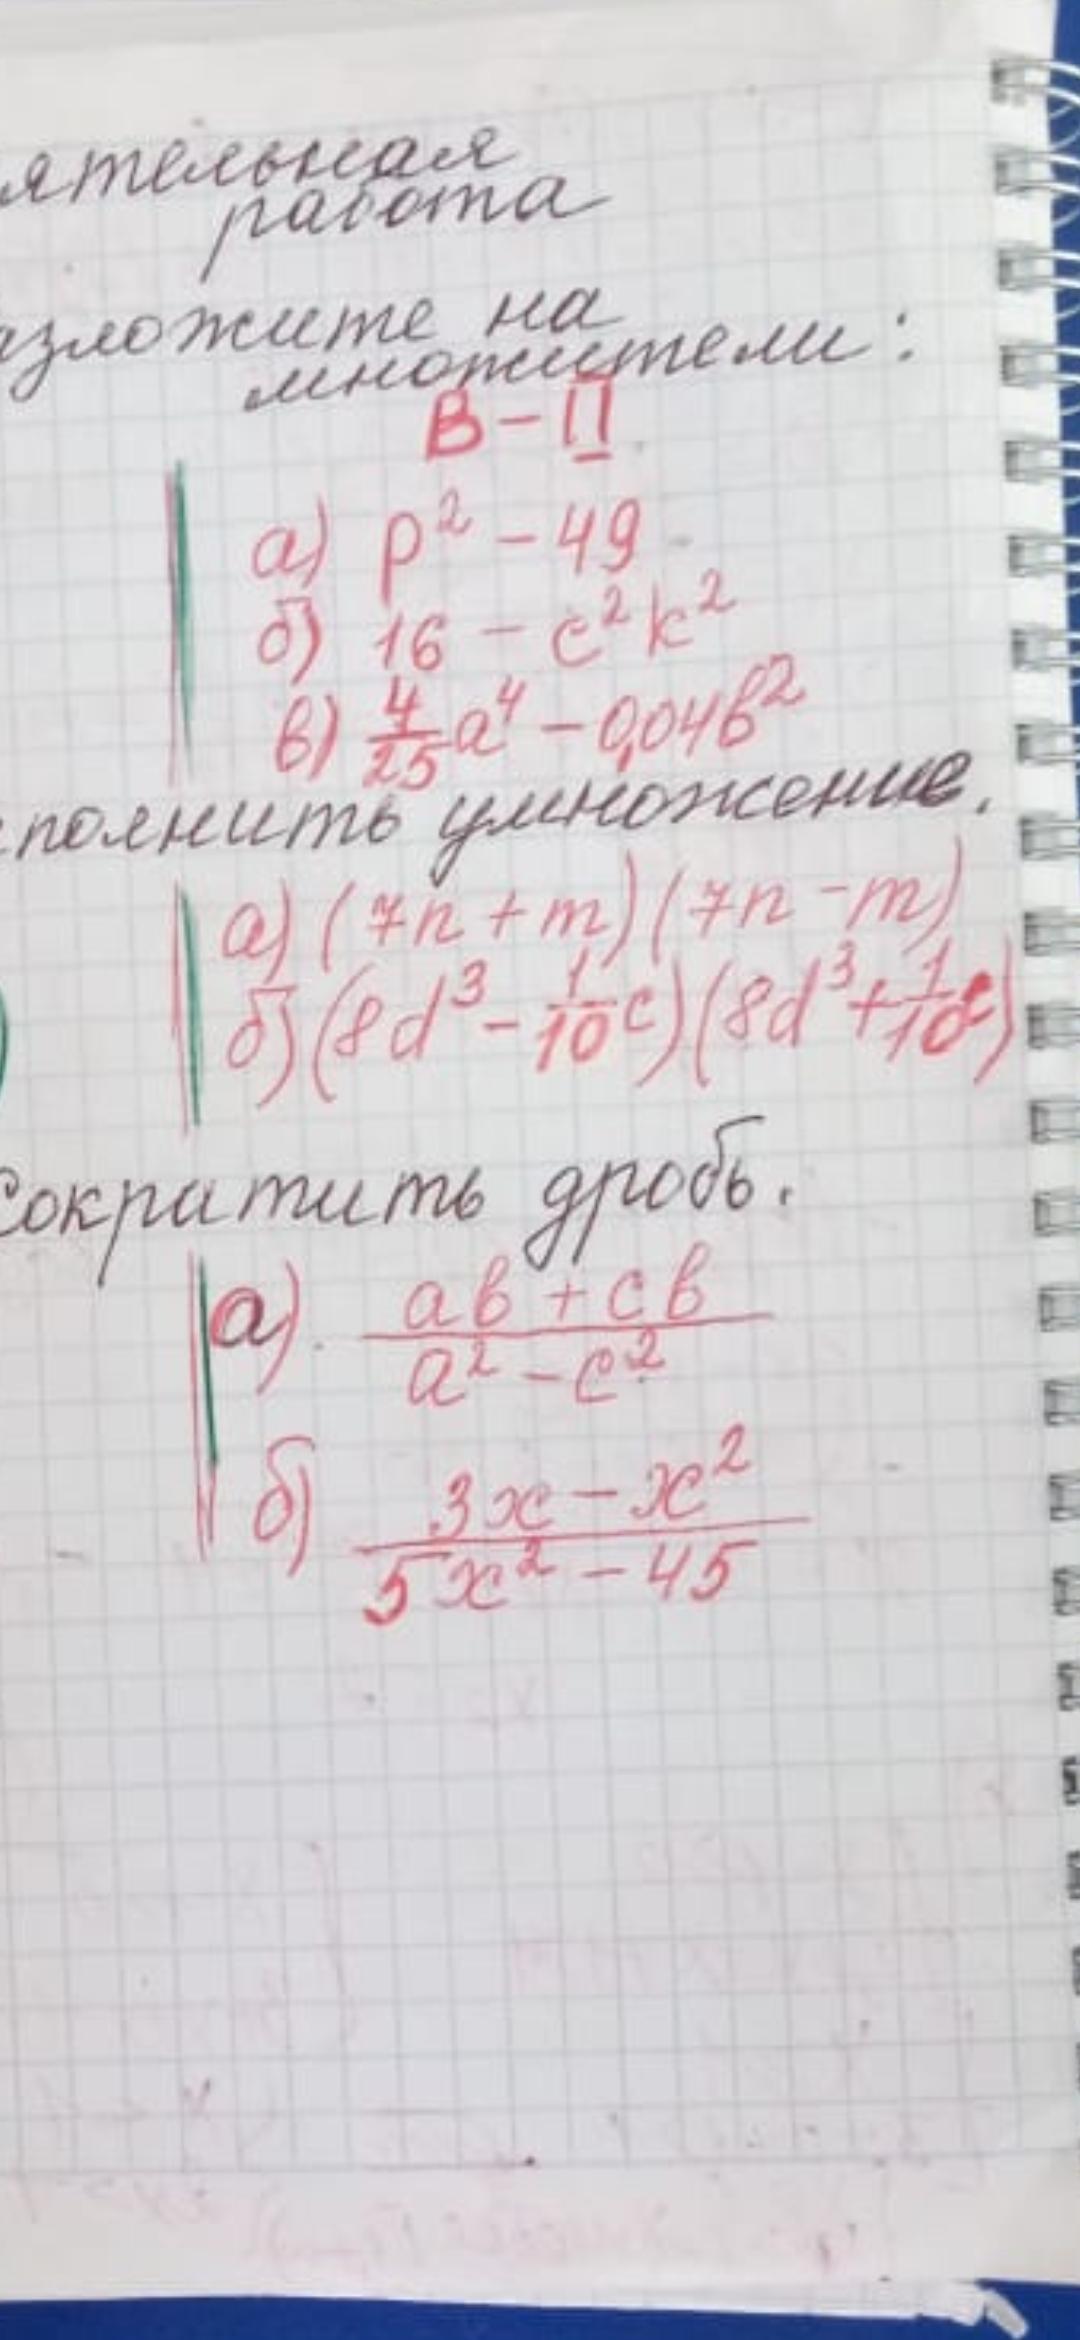 ятельная
работа
азложите на
множители:
В-II
а) p² - 49
б) 16 - c²k²
в) 4/25 a⁴ - 0,04b²
полнить умножение.
а) (7n + m)(7n - m)
б) (8d³ - 1/10 c)(8d³ + 1/10 c)
Сократить дробь.
а) ab + cb
a² - c²
б) 3x - x²
5x² - 45